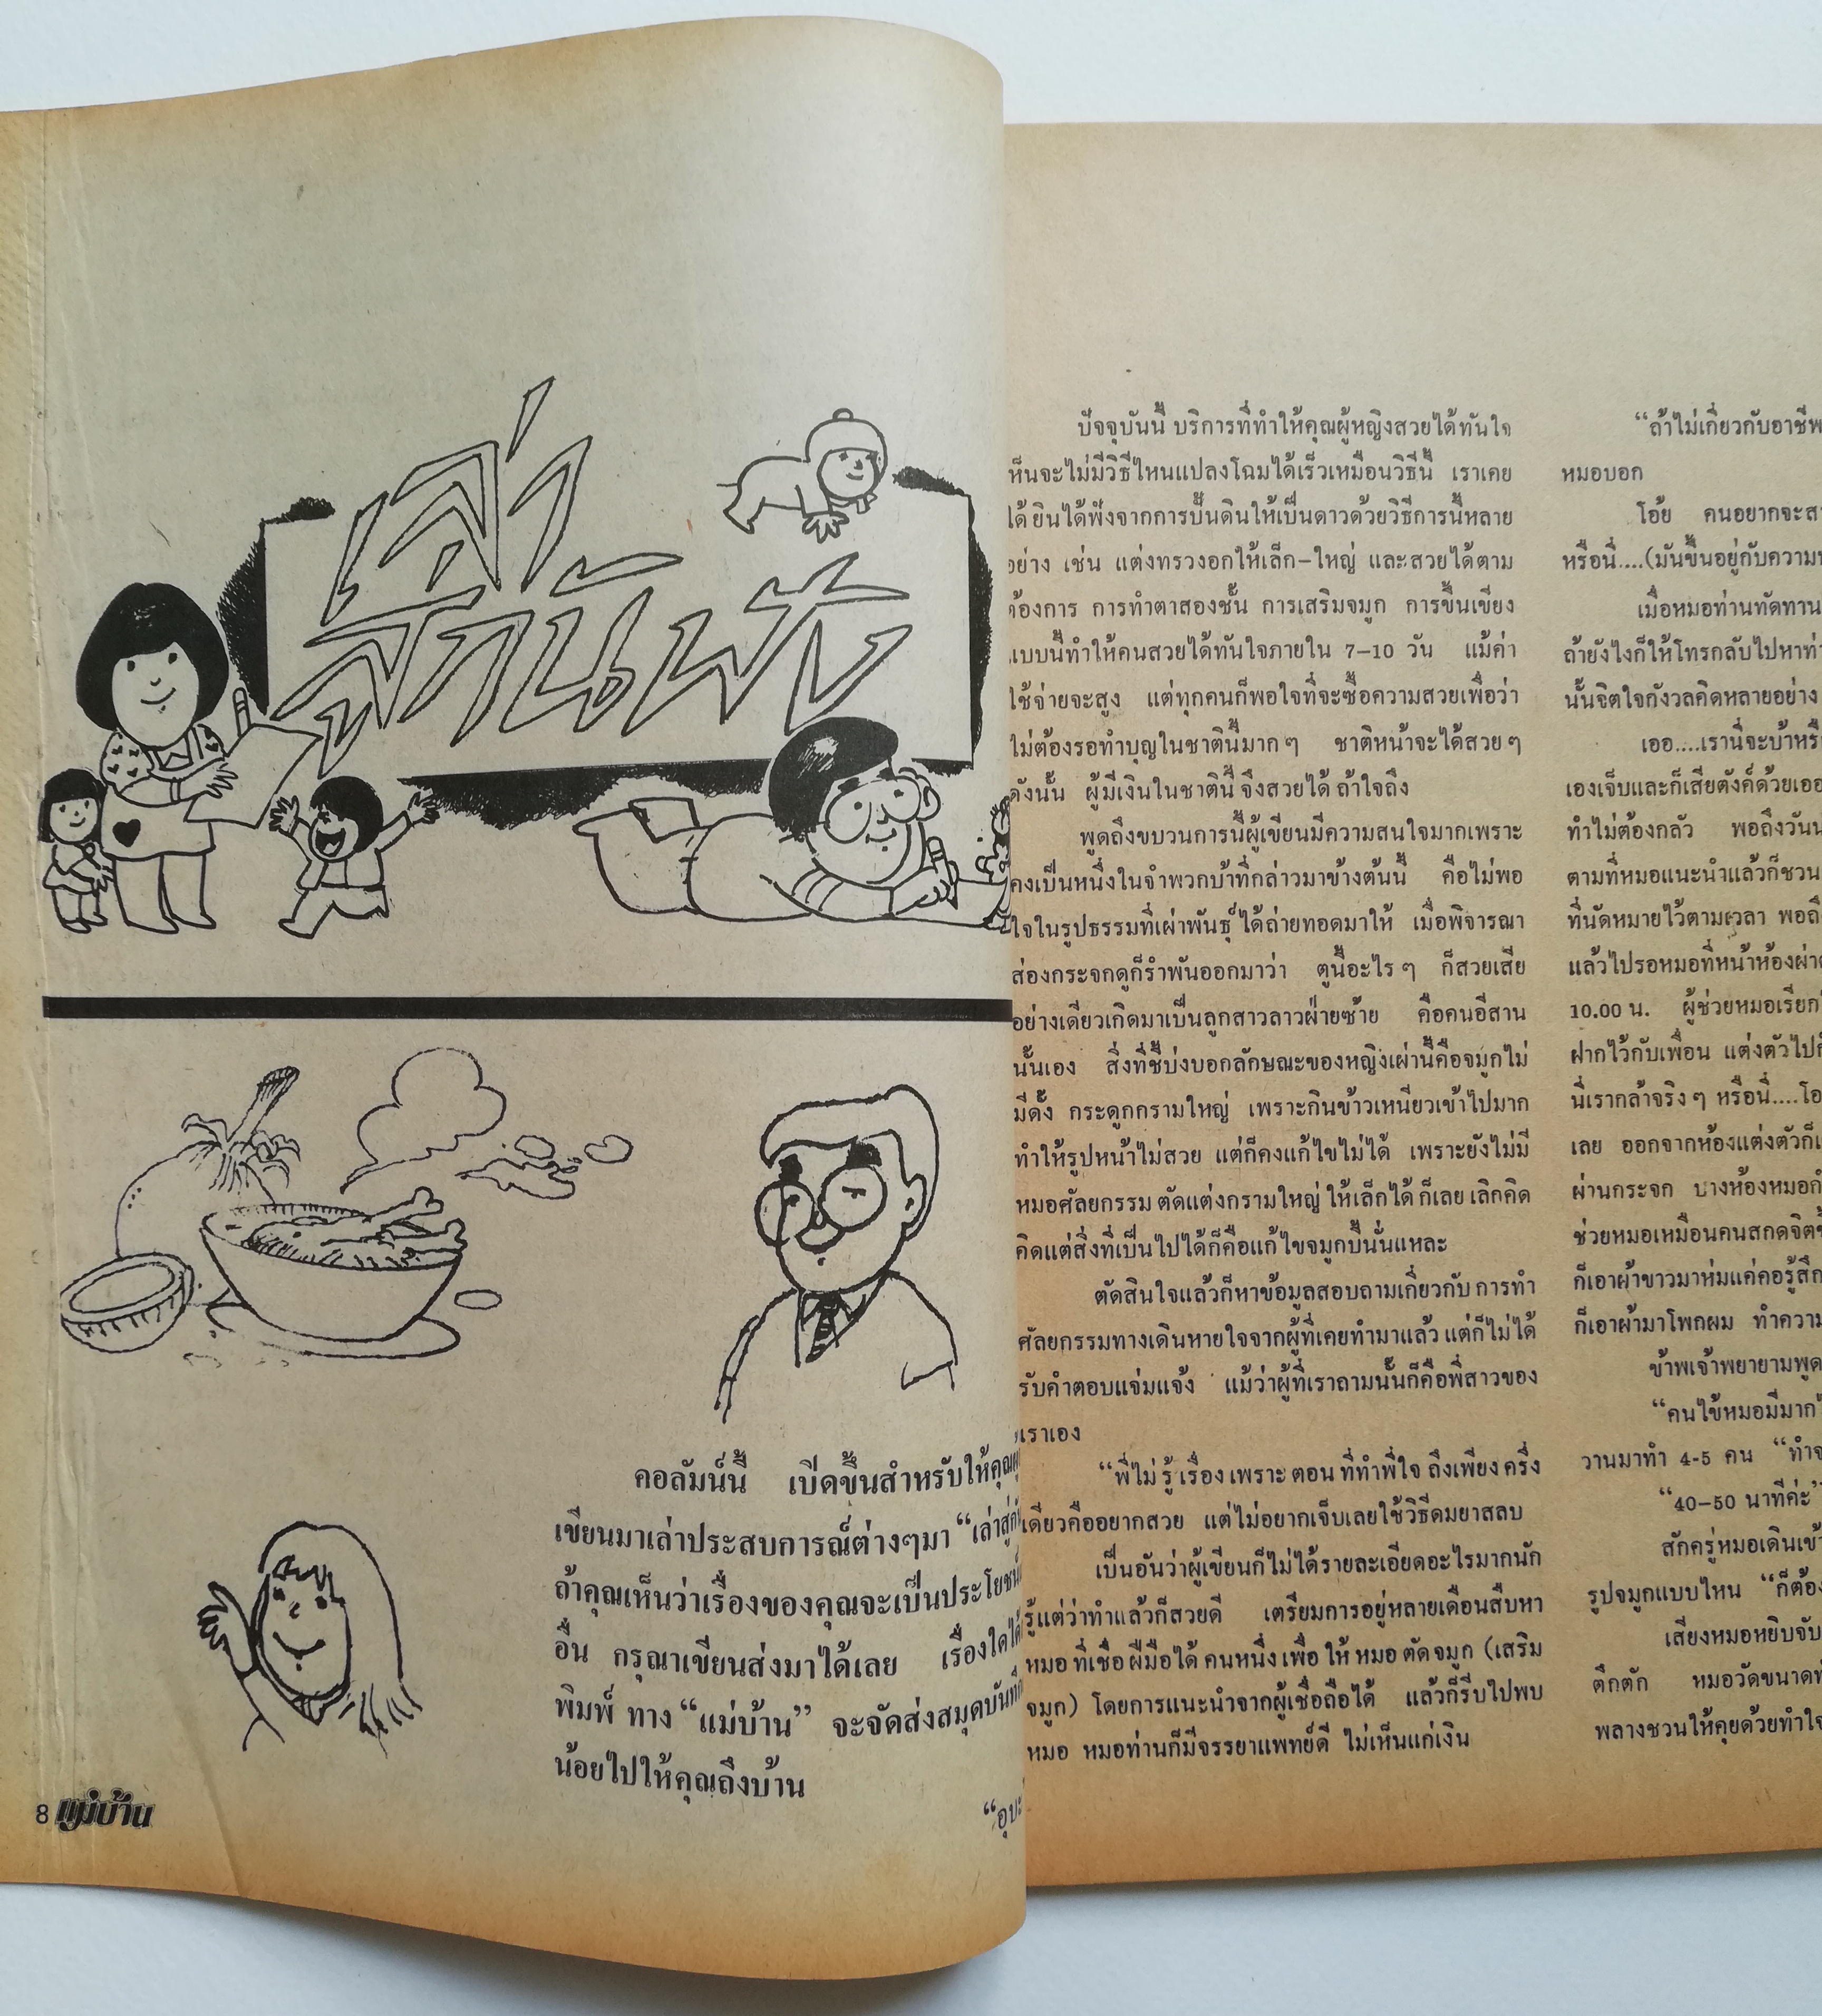 เล่า
สู่กันฟัง
คอลัมน์นี้ เปิดขึ้นสำหรับให้คุณ
เขียนมาเล่าประสบการณ์ต่างๆมา “เล่าสู่กัน
ถ้าคุณเห็นว่าเรื่องของคุณจะเป็นประโยชน์
อื่น กรุณาเขียนส่งมาได้เลย เรื่องใดได้
พิมพ์ ทาง “แม่บ้าน” จะจัดส่งสมุดบันทึก
น้อยไปให้คุณถึงบ้าน
8 แม่บ้าน
ปัจจุบันนี้ บริการที่ทำให้คุณผู้หญิงสวยได้ทันใจ
เห็นจะไม่มีวิธีไหนแปลงโฉมได้เร็วเหมือนวิธีนี้ เราเคย
ได้ยินได้ฟังจากการปั้นดินให้เป็นดาวด้วยวิธีการนี้หลาย
อย่าง เช่น แต่งทรวงอกให้เล็ก–ใหญ่ และสวยได้ตาม
ต้องการ การทำตาสองชั้น การเสริมจมูก การขึ้นเขียง
แบบนี้ทำให้คนสวยได้ทันใจภายใน 7–10 วัน แม้ค่า
ใช้จ่ายจะสูง แต่ทุกคนก็พอใจที่จะซื้อความสวยเพื่อว่า
ไม่ต้องรอทำบุญในชาตินี้มาก ๆ ชาติหน้าจะได้สวย ๆ
ดังนั้น ผู้มีเงินในชาตินี้ จึงสวยได้ ถ้าใจถึง
พูดถึงขบวนการนี้ผู้เขียนมีความสนใจมากเพราะ
คงเป็นหนึ่งในจำพวกบ้าที่กล่าวมาข้างต้นนี้ คือไม่พอ
ใจในรูปธรรมที่เผ่าพันธุ์ ได้ถ่ายทอดมาให้ เมื่อพิจารณา
ส่องกระจกดูก็รำพันออกมาว่า ตูนี้อะไร ๆ ก็สวยเสีย
อย่างเดียวเกิดมาเป็นลูกสาวลาวฝ่ายซ้าย คือคนอีสาน
นั้นเอง สิ่งที่ชี้บ่งบอกลักษณะของหญิงเผ่านี้คือจมูกไม่
มีดั้ง กระดูกกรามใหญ่ เพราะกินข้าวเหนียวเข้าไปมาก
ทำให้รูปหน้าไม่สวย แต่ก็คงแก้ไขไม่ได้ เพราะยังไม่มี
หมอศัลยกรรม ตัดแต่งกรามใหญ่ ให้เล็กได้ ก็เลย เลิกคิด
คิดแต่สิ่งที่เป็นไปได้ก็คือแก้ไขจมูกบี้นั่นแหละ
ตัดสินใจแล้วก็หาข้อมูลสอบถามเกี่ยวกับ การทำ
ศัลยกรรมทางเดินหายใจจากผู้ที่เคยทำมาแล้ว แต่ก็ไม่ได้
รับคำตอบแจ่มแจ้ง แม้ว่าผู้ที่เราถามนั้นก็คือพี่สาวของ
เราเอง
“พี่ไม่ รู้ เรื่อง เพราะ ตอน ที่ทำพี่ใจ ถึงเพียง ครึ่ง
เดียวคืออยากสวย แต่ไม่อยากเจ็บเลยใช้วิธีดมยาสลบ
เป็นอันว่าผู้เขียนก็ไม่ได้รายละเอียดอะไรมากนัก
รู้แต่ว่าทำแล้วก็สวยดี เตรียมการอยู่หลายเดือนสืบหา
หมอ ที่เชื่อ ฝีมือได้ คนหนึ่ง เพื่อ ให้ หมอ ตัด จมูก (เสริม
จมูก) โดยการแนะนำจากผู้เชื่อถือได้ แล้วก็รีบไปพบ
หมอ หมอท่านก็มีจรรยาแพทย์ดี ไม่เห็นแก่เงิน
“ถ้าไม่เกี่ยวกับอาชีพ
หมอบอก
โอ้ย คนอยากจะส
หรือนี่....(มันขึ้นอยู่กับความ
เมื่อหมอท่านทัดทาน
ถ้ายังไงก็ให้โทรกลับไปหาท่า
นั้นจิตใจกังวลคิดหลายอย่าง
เออ....เรานี่จะบ้าหรื
เองเจ็บและก็เสียตังค์ด้วยเออ
ทำไม่ต้องกลัว พอถึงวัน
ตามที่หมอแนะนำแล้วก็ชวน
ที่นัดหมายไว้ตามเวลา พอถึ
แล้วไปรอหมอที่หน้าห้องผ่า
10.00 น. ผู้ช่วยหมอเรียก
ฝากไว้กับเพื่อน แต่งตัวไป
นี่เรากล้าจริง ๆ หรือนี่....โอ
เลย ออกจากห้องแต่งตัวก็
ผ่านกระจก บางห้องหมอก
ช่วยหมอเหมือนคนสกดจิต
ก็เอาผ้าขาวมาห่มแค่คอรู้สึก
ก็เอาผ้ามาโพกผม ทำความ
ข้าพเจ้าพยายามพูด
“คนไข้หมอมีมาก
วานมาทำ 4-5 คน “ทำจ
“40–50 นาทีค่ะ”
สักครู่หมอเดินเข้า
รูปจมูกแบบไหน “ก็ต้อง
เสียงหมอหยิบจับ
ตึกตัก หมอวัดขนาด
พลางชวนให้คุยด้วยทำใจ